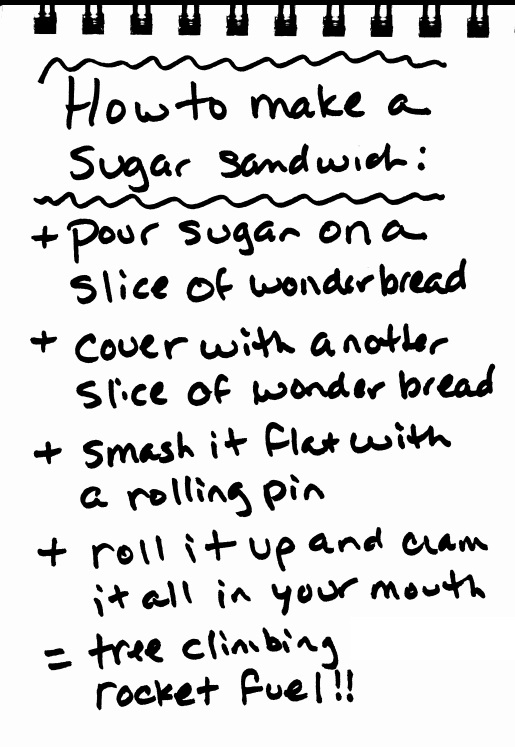 How to make a
Sugar sandwich:
+ pour sugar on a
slice of wonder bread
+ cover with another
slice of wonder bread
+ smash it flat with
a rolling pin
+ roll it up and cram
it all in your mouth
= tree climbing
rocket fuel!!